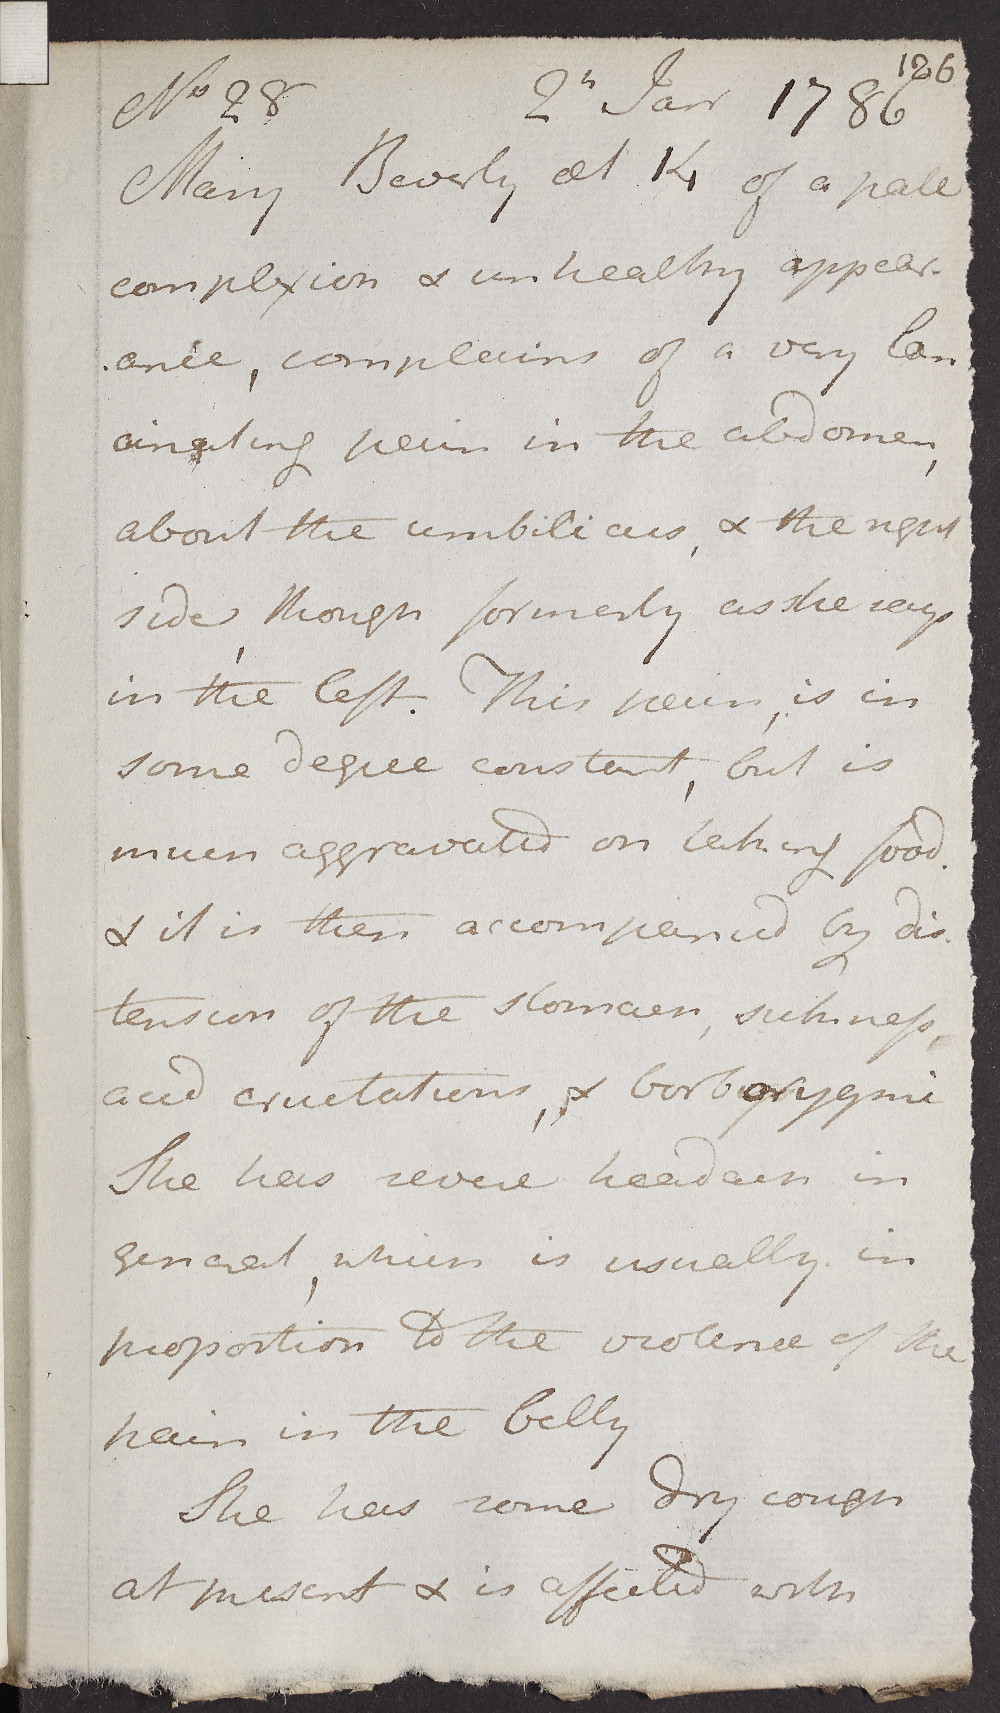 126
No 28 2n Janr 1786
Mary Beverly æt 14 of a pale
complexion & unhealthy appear-
-ance, complains of a very lan
cinating pain in the abdomen,
about the umbilicus, & the right
side, though formerly as she says
in the left. This pain, is in
some degree constant, but is
much aggravated on taking food.
& it is then accompanied by dis-
tension of the stomach, sickness,
acid eructations, & borborygmi
She has severe headach in
general, which is usually in
proportion to the violence of the
pain in the belly
She has some dry cough
at present & is affected with